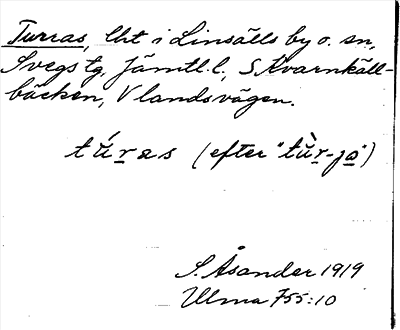 Turras, lht i Linsälls by o. sn,
Svegs tg, Jämtl. l., S. Kvarnkäll-
bäcken, V landsvägen.
túras (efter "tùr-ja")
S. Åsander 1919
Ulma 755:10